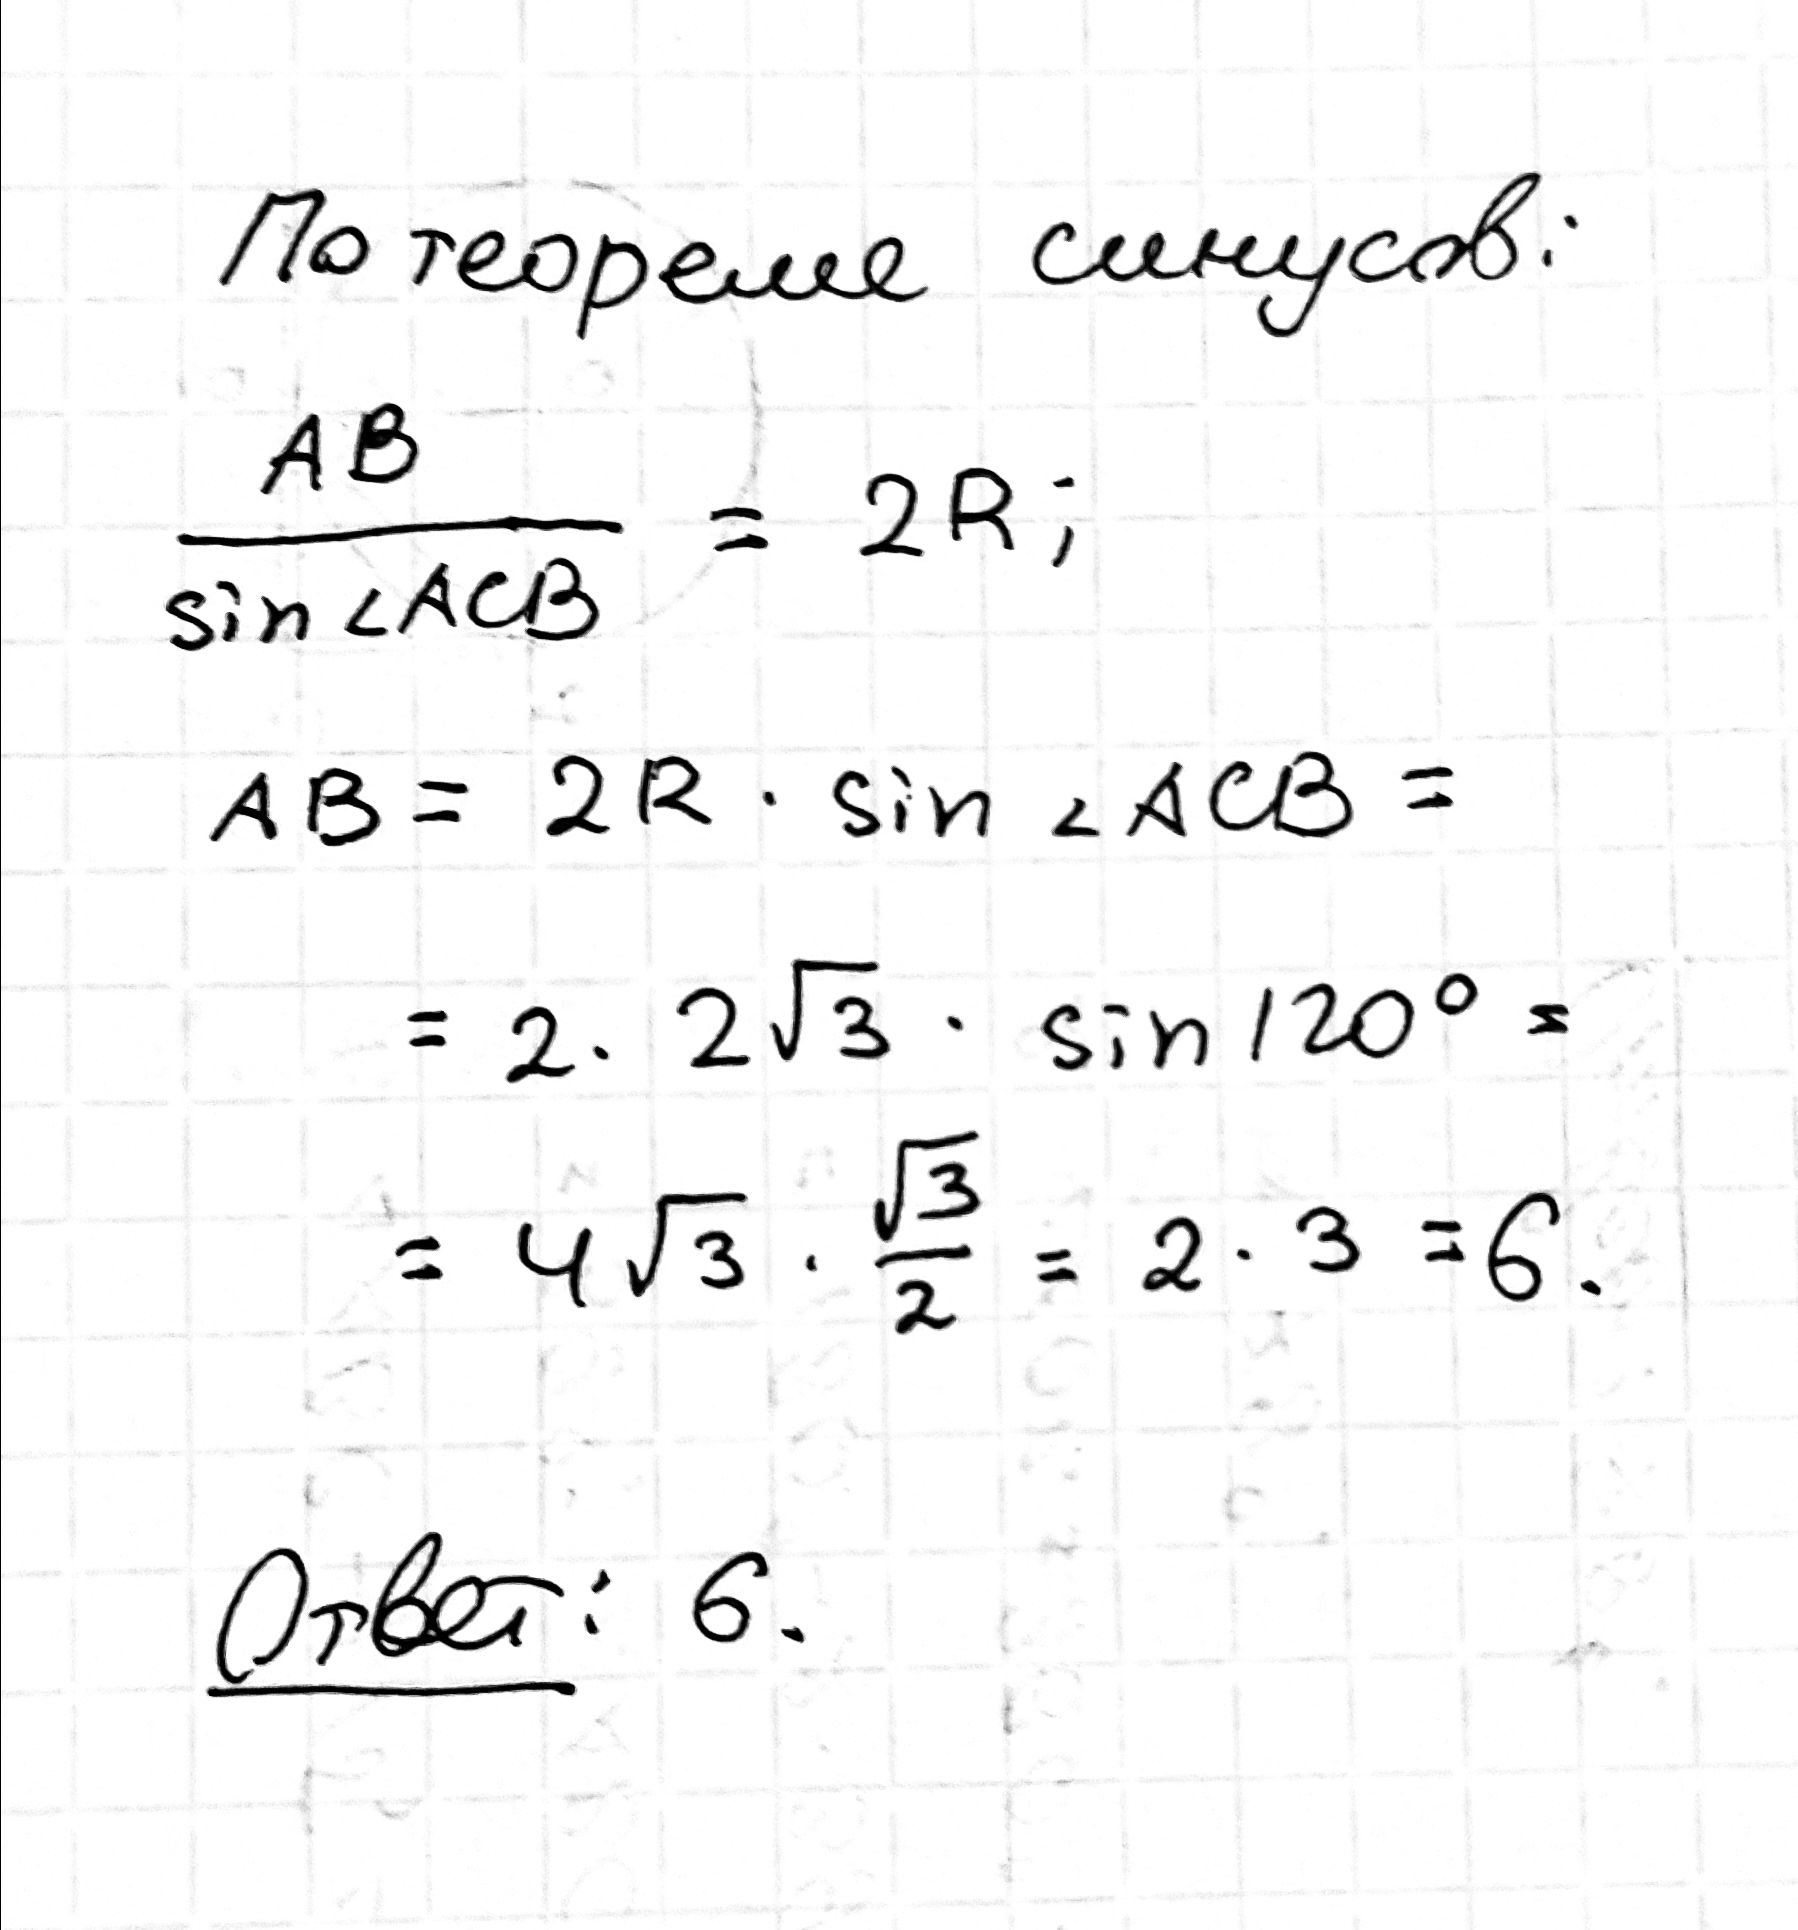 По теореме синусов:
AB
sin ∠ACB
= 2R;
AB = 2R · sin ∠ACB =
= 2 · 2√3 · sin 120° =
= 4√3 · √3/2 = 2 · 3 = 6.
Ответ: 6.